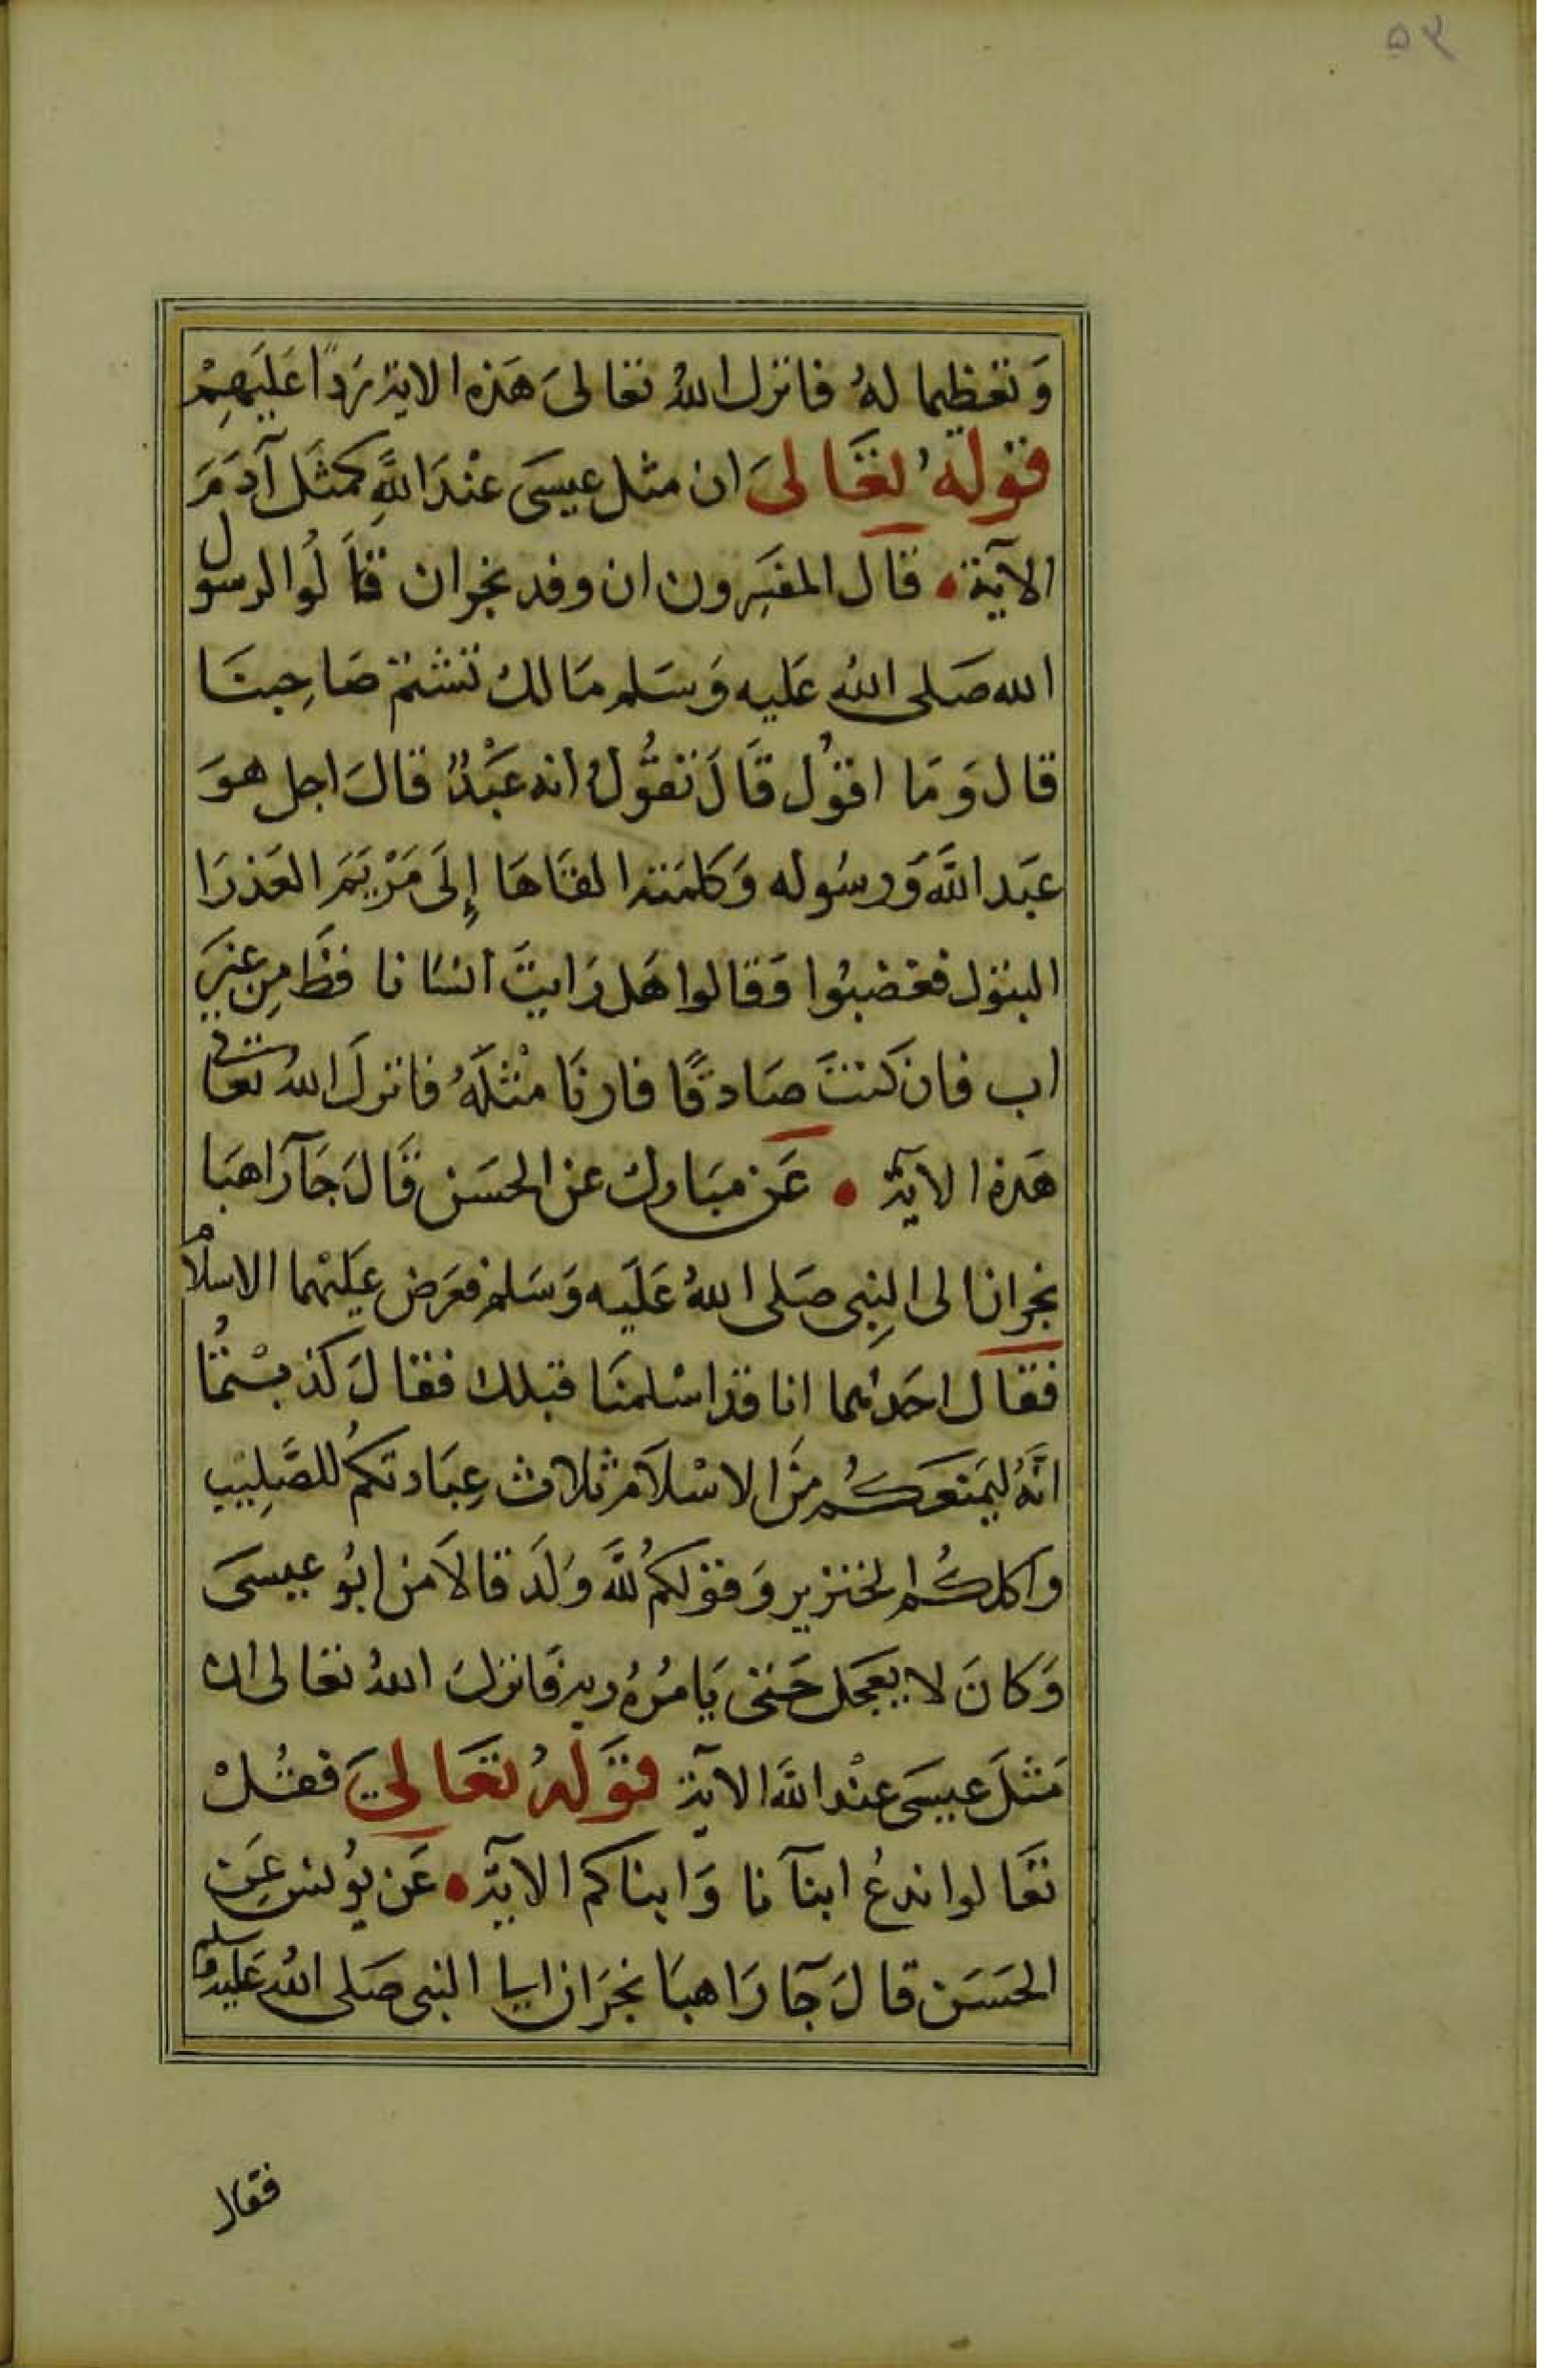 ٥٢
وَتعظيما لهُ فانزل اللهُ تعالىَ هَذه الاية رَدًا عَلَيهِمْ
قولهُ تعَالىَ ان مثل عيسَى عنْدَ اللَّهِ كمثَل آدَمَ
الآية • قال المفسِرون ان وفد نجران قاَلُوا لرسول
الله صَلى اللهُ عَليه وَسَلم مَالك تشتم صَاحِبنَا
قال وَمَا اقوُل قَالَ تقوُّلُ انه عَبْدٌ قالَ اجل هوَ
عَبَد اللَّه وَرسُوله وَكلمَته القاهَا إِلَى مَرْيَمَ العَذرَا
البتول فغضبُوا وَقالوا هَل رَايتَ انسَانا قطَّ مِن غيَرِ
اب فان كنتَ صَادقًا فارنَا مثْلَهُ فانزلَ اللهُ تعَالى
هَذه الآية • عَن مبَارك عن الحسَن قَالَ جَآ راهبَا
نجران الى النِبى صَلى اللهُ عَلَيه وَسَلم فعَرَض عَليْهما الاسلاَم
فقال احَدهُما انا قد اسْلمنَا قبلك فقالَ كذبْتمُا
انَّهُ ليَمنعَكُم مِنَ الاسْلاَم ثلاث عِبَادتكمُ للصَّلِيَب
واكلكُم الخنزير وَقولكمُ للَّه وَلَد قالاَ من ابُو عيسىَ
وَكانَ لا يعَجَل حَتى يَامُرهُ ربه فانزلَ اللهُ تعالى ان
مَثلَ عيسَى عنْد اللَّه الآية قوَلهُ تعَالىَ فقُلْ
تعَالوا ندعُ ابنآنا وَابناكم الآية • عَن يوُنس عَنِ
الحَسَن قالَ جَآ رَاهبَا نجرَان الى النبى صَلى اللهُ عَليه وسلم
فقال